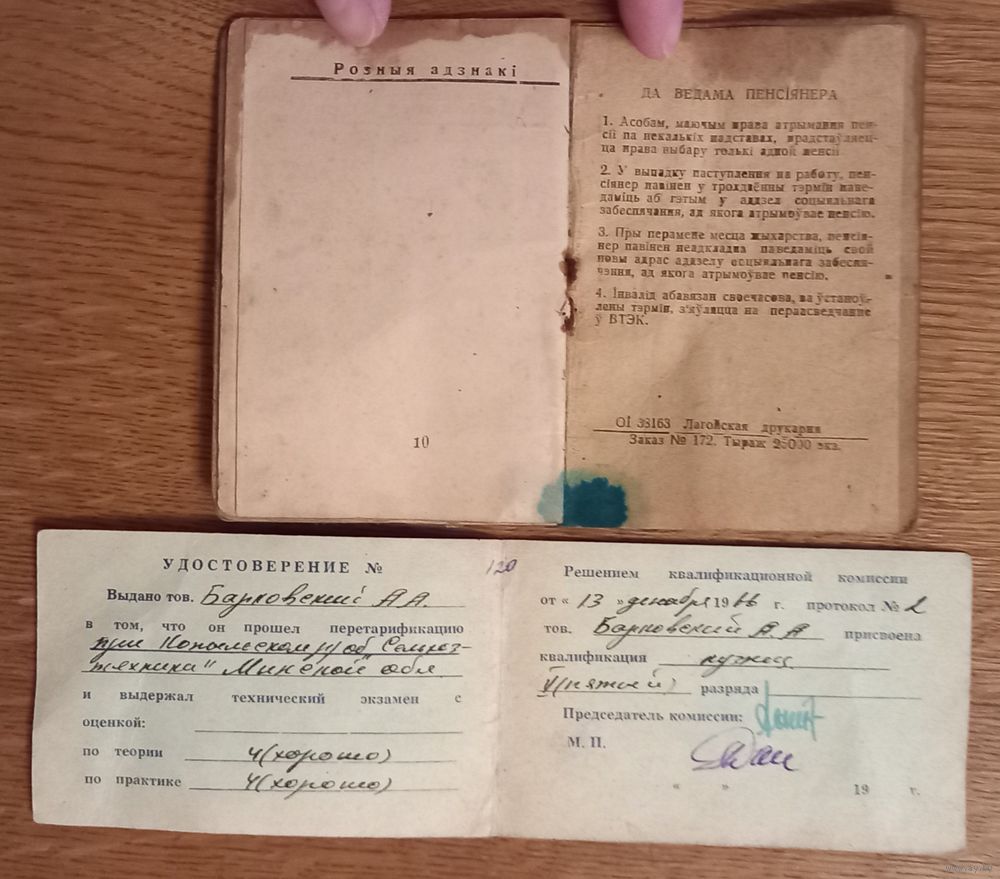 Розныя адзнакі
10
ДА ВЕДАМА ПЕНСІЯНЕРА
1. Асобам, маючым права атрымання пен-
сіі па некалькіх падставах, прадстаўляец-
ца права выбару толькі адной пенсіі.
2. У выпадку паступлення на работу, пен-
сіянер павінен у трохдзённы тэрмін паве-
даміць аб гэтым у аддзел соцыяльнага
забеспячання, ад якога атрымоўвае пенсію.
3. Пры перамене месца жыхарства, пенсія-
нер павінен неадкладна паведаміць свой
новы адрас аддзелу соцыяльнага забеспя-
чэння, ад якога атрымоўвае пенсію.
4. Інвалід абавязан своечасова, ва ўстаноў-
лены тэрмін, з'яўляцца на пераасведчанне
ў ВТЭК.
ОІ 33163 Лагойская друкарня
Заказ № 172. Тыраж 25000 экз.
УДОСТОВЕРЕНИЕ № 120
Выдано тов. Барковский А А.
в том, что он прошел перетарификацию
при Копыльском об Сельхоз-
техника" Минской обл.
и выдержал технический экзамен с
оценкой:
по теории 4 (хорошо)
по практике 4 (хорошо)
Решением квалификационной комиссии
от « 13 » декабря 1966 г. протокол № 2
тов. Барковский А. А присвоена
квалификация кузнец
V (пятый) разряда
Председатель комиссии:
М. П.
« » 19 г.